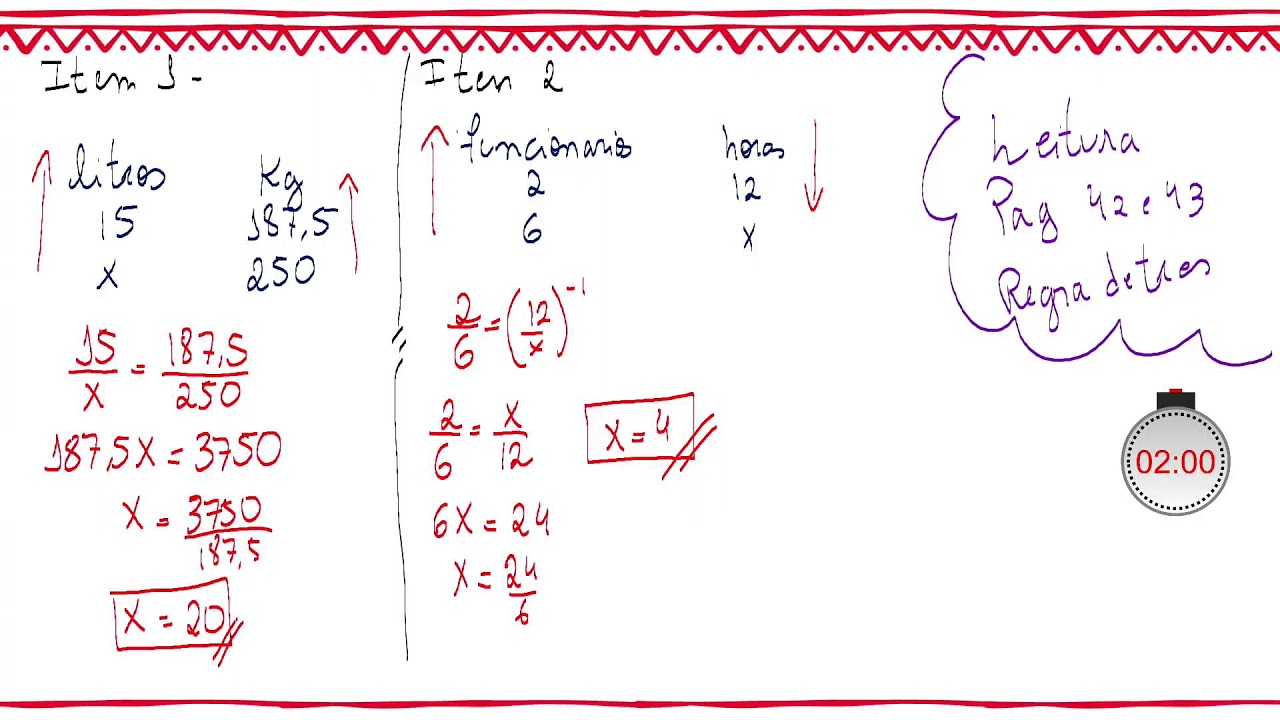 Item 1 -
litros Kg
15 187,5
x 250
15/x = 187,5/250
187,5x = 3750
x = 3750/187,5
x = 20
Iten 2
funcionarios horas
2 12
6 x
2/6 = (12/x)^-1
2/6 = x/12
x = 4
6x = 24
x = 24/6
Leitura
Pag 42 e 43
Regra de tres
02:00